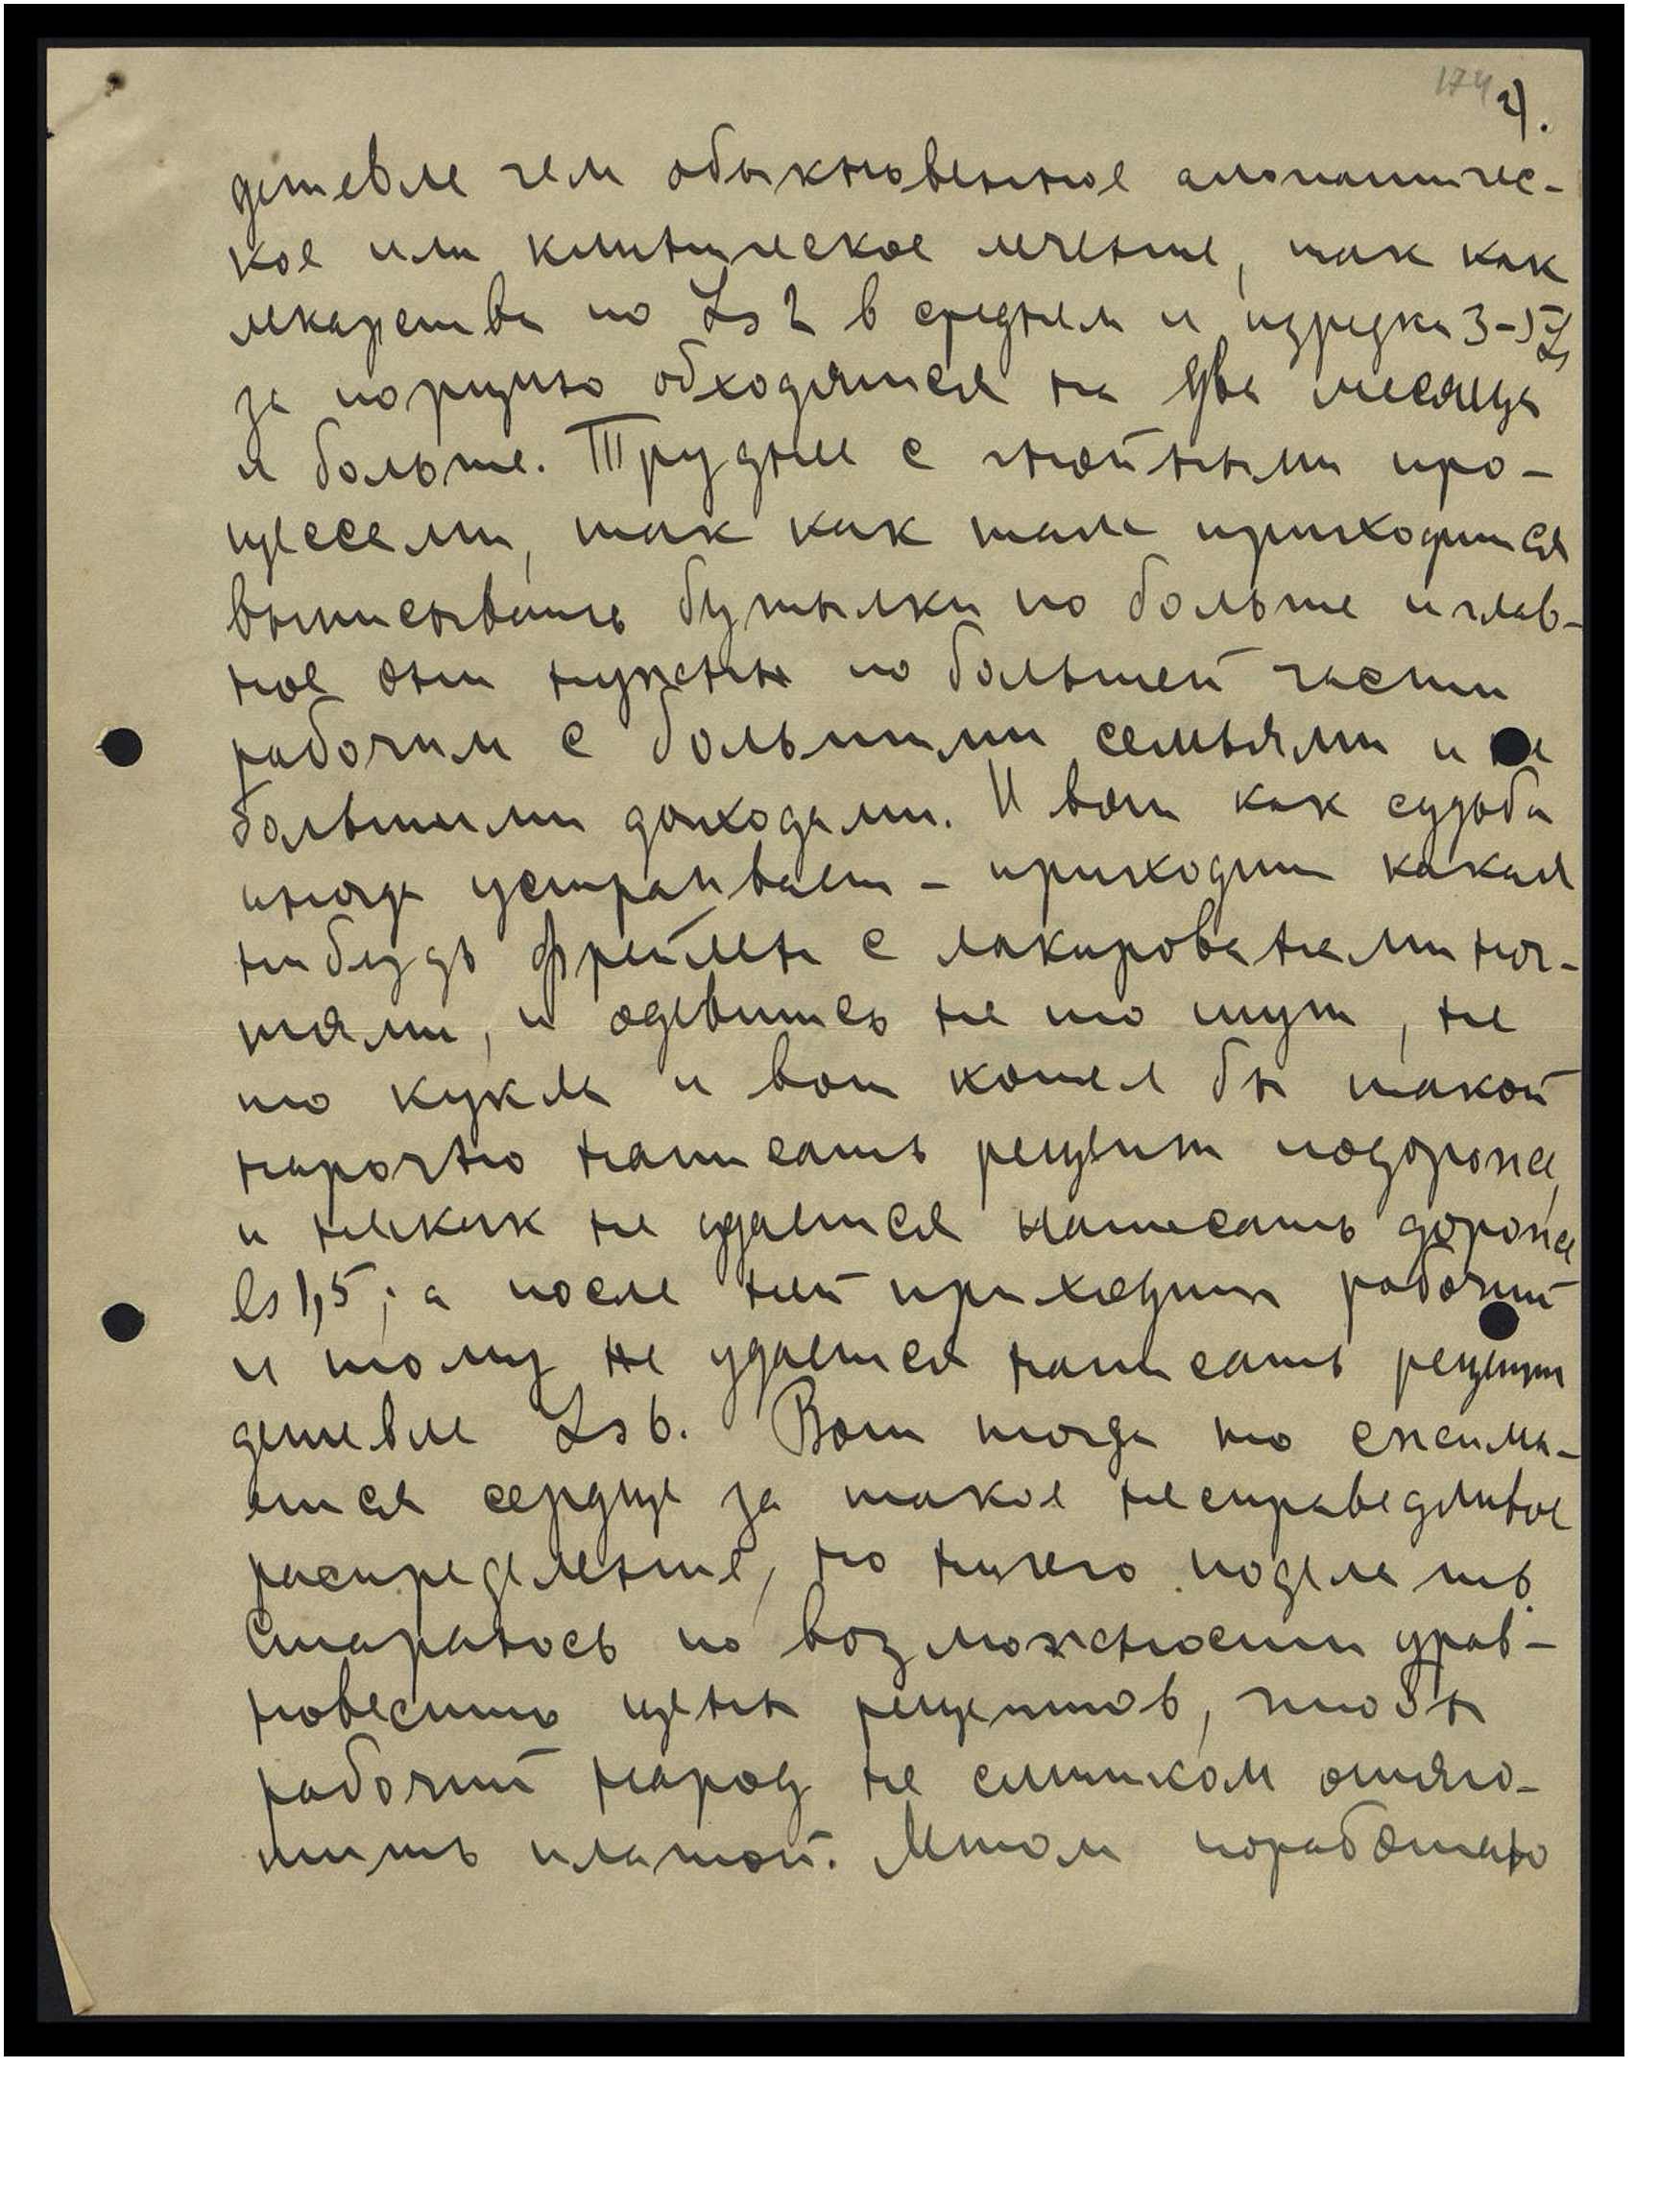 174 2).
дешевле чем обыкновенное алопатичес-
кое или клиническое лечение, так как
лекарства по Ls 2 в среднем и изредка 3-5 Ls
за порцию обходятся на два месяца
и больше. Труднее с гнойными про-
цессами, так как там приходится
выписывать бутылки по больше и глав-
ное они нужны по большей части
рабочим с большими семьями и не
большими доходами. И вот как судьба
иногда устраивает - приходит какая
нибудь фрейлен с лакироваными ног-
тями, и одевшись не то шут, не
то кукла и вот хотел бы такой
нарочно написать рецепт подороже,
и никак не удается написать дороже
Ls 1,5; а после ней приходит рабочий
и тому не удается написать рецепт
дешевле Ls 6. Вот тогда то сжима-
ется сердце за такое несправедливое
распределение, но ничего поделать.
Стараюсь по возможности урав-
новесить цены рецептов, чтобы
рабочий народ не слишком отяго-
тить платой. Летом поработаю